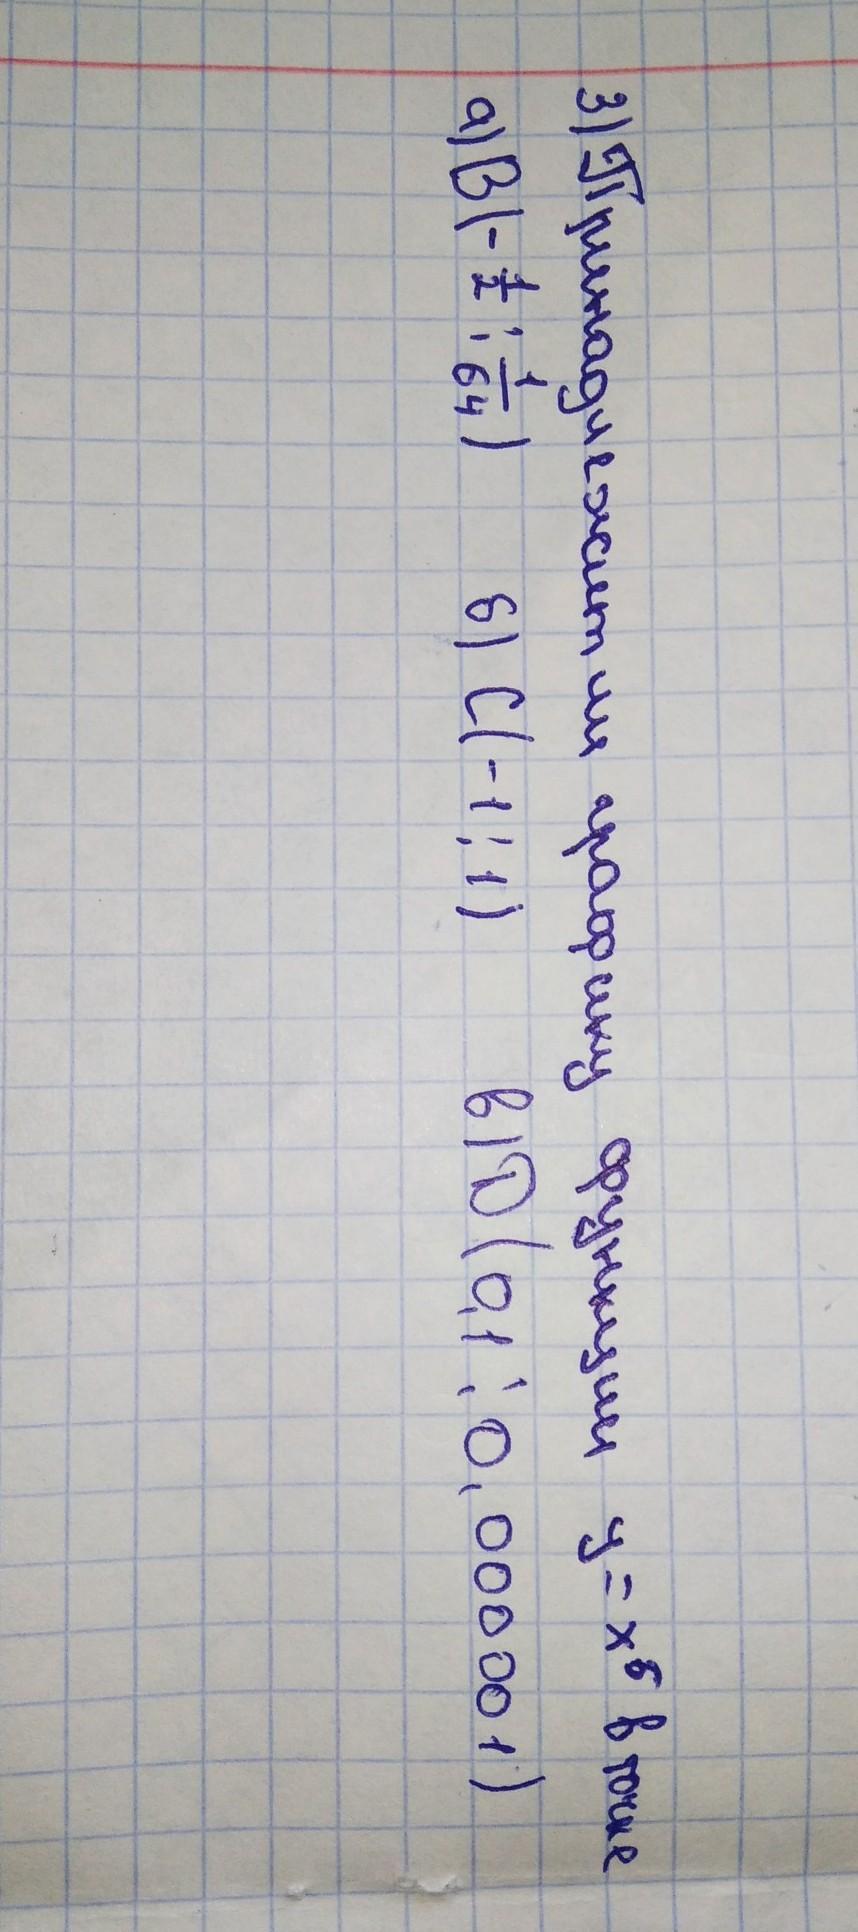 3) Принадлежит ли графику функции y = x⁶ в точке
а) B(-1/2; 1/64) б) C(-1; 1) в) D(0,1; 0,000001)